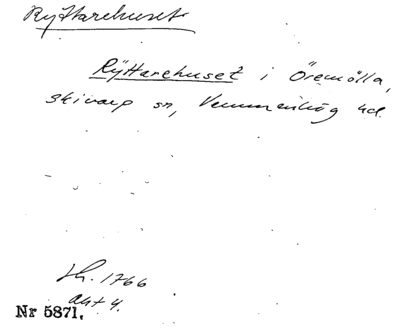 Ryttarehuset
Ryttarehuset i Öremölla,
skivarp sn, Vemmenhög hd.
Lh. 1766
akt 4.
Nr 5871.